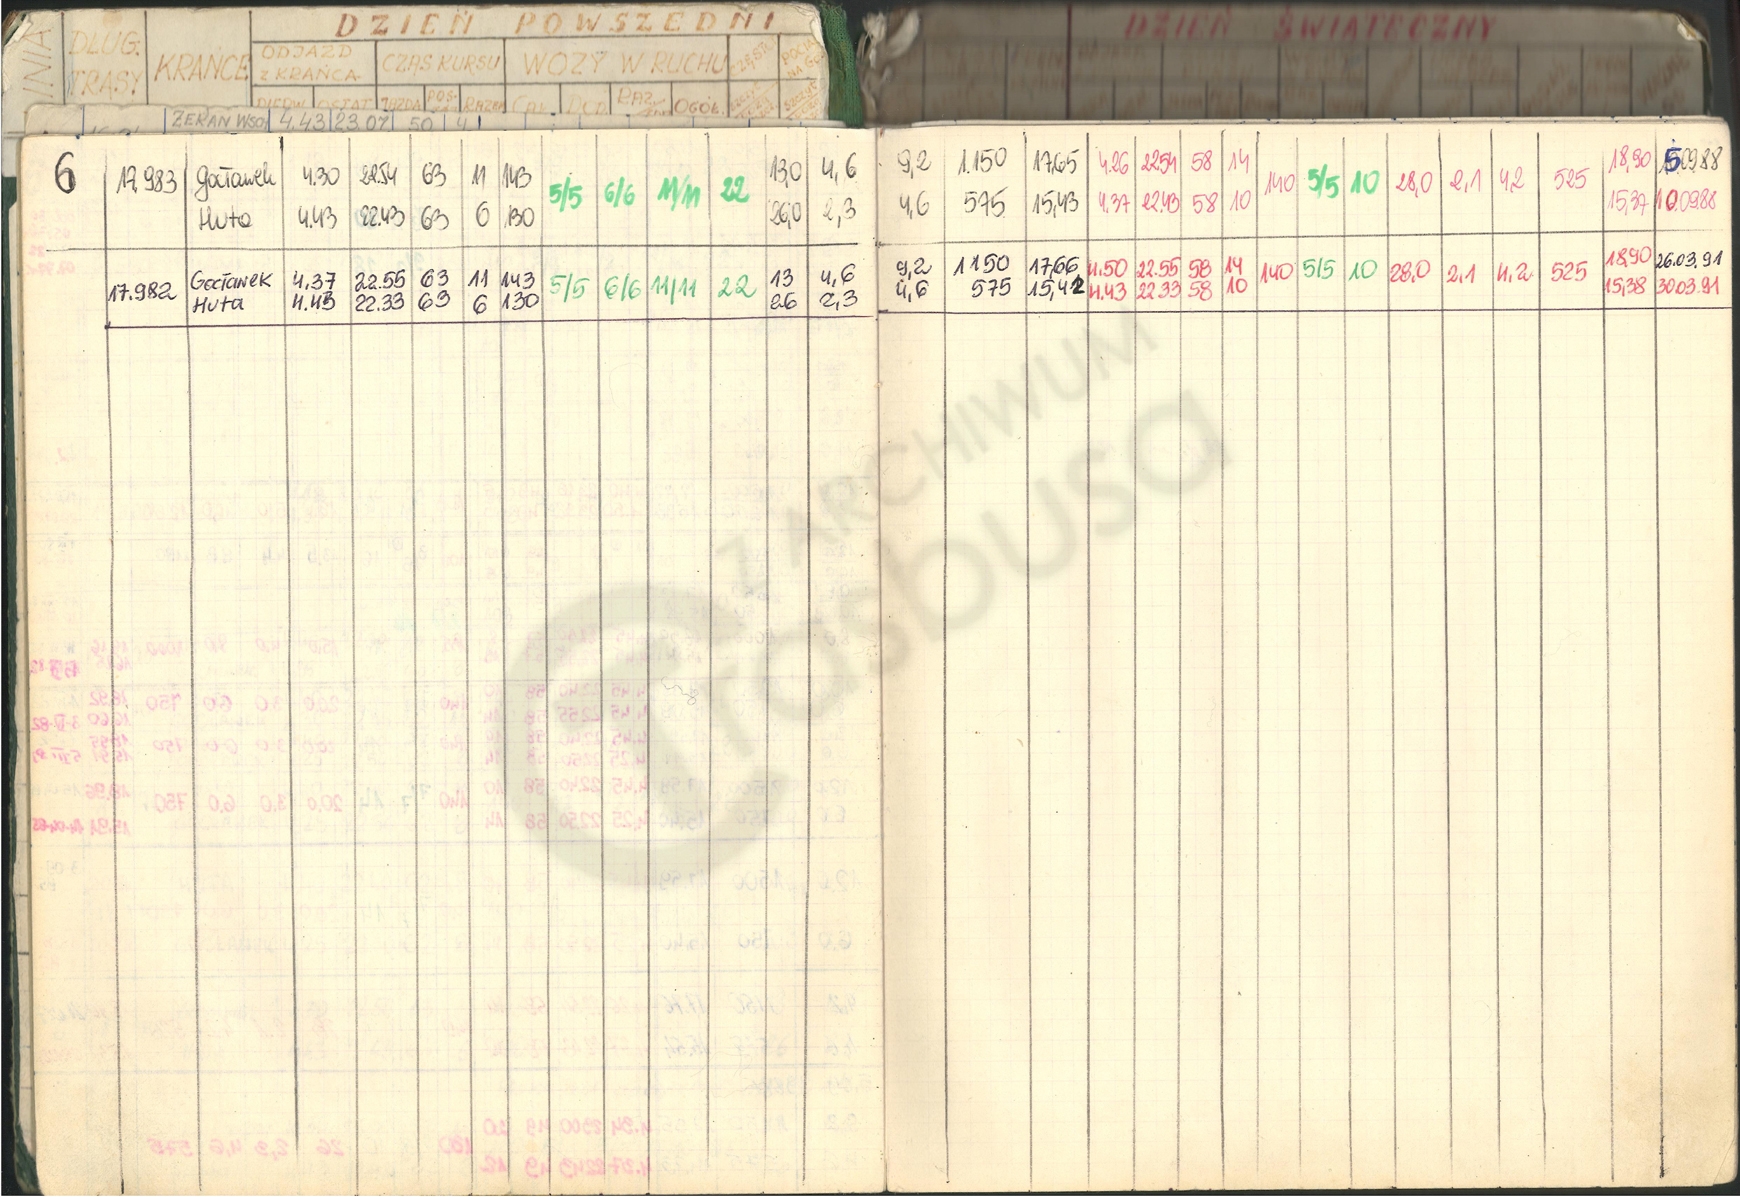 DZIEŃ POWSZEDNI DZIEŃ ŚWIĄTECZNY
LINIA DŁUG. TRASY KRAŃCE ODJAZD Z KRAŃCA CZAS KURSU WOZY W RUCHU
OSTAT. JAZDA RAZEM OGÓŁ.
ŻERAŃ WSCH 4.43 23.07 50 4
6 17,983 Gocławek 4.30 22.54 63 11 143 5/5 6/6 11/11 22 13,0 4,6 9,2 1.150 17,65 4.26 22.54 58 14 140 5/5 10 28,0 2,1 4,2 525 18,90 5.09.88
Huta 4.43 22.43 63 6 130 26,0 2,3 4,6 575 15,43 4.37 22.43 58 10 15,37 10.09.88
17.982 Gocławek 4,37 22.55 63 11 143 5/5 6/6 11/11 22 13 4,6 9,2 1150 17,66 4.50 22.55 58 14 140 5/5 10 28,0 2,1 4,2 525 18,90 26.03.91
Huta 4.45 22.33 63 6 130 26 2,3 4,6 575 15,42 4.43 22 33 58 10 15,38 30.03.91
Z ARCHIWUM
Trasbusa